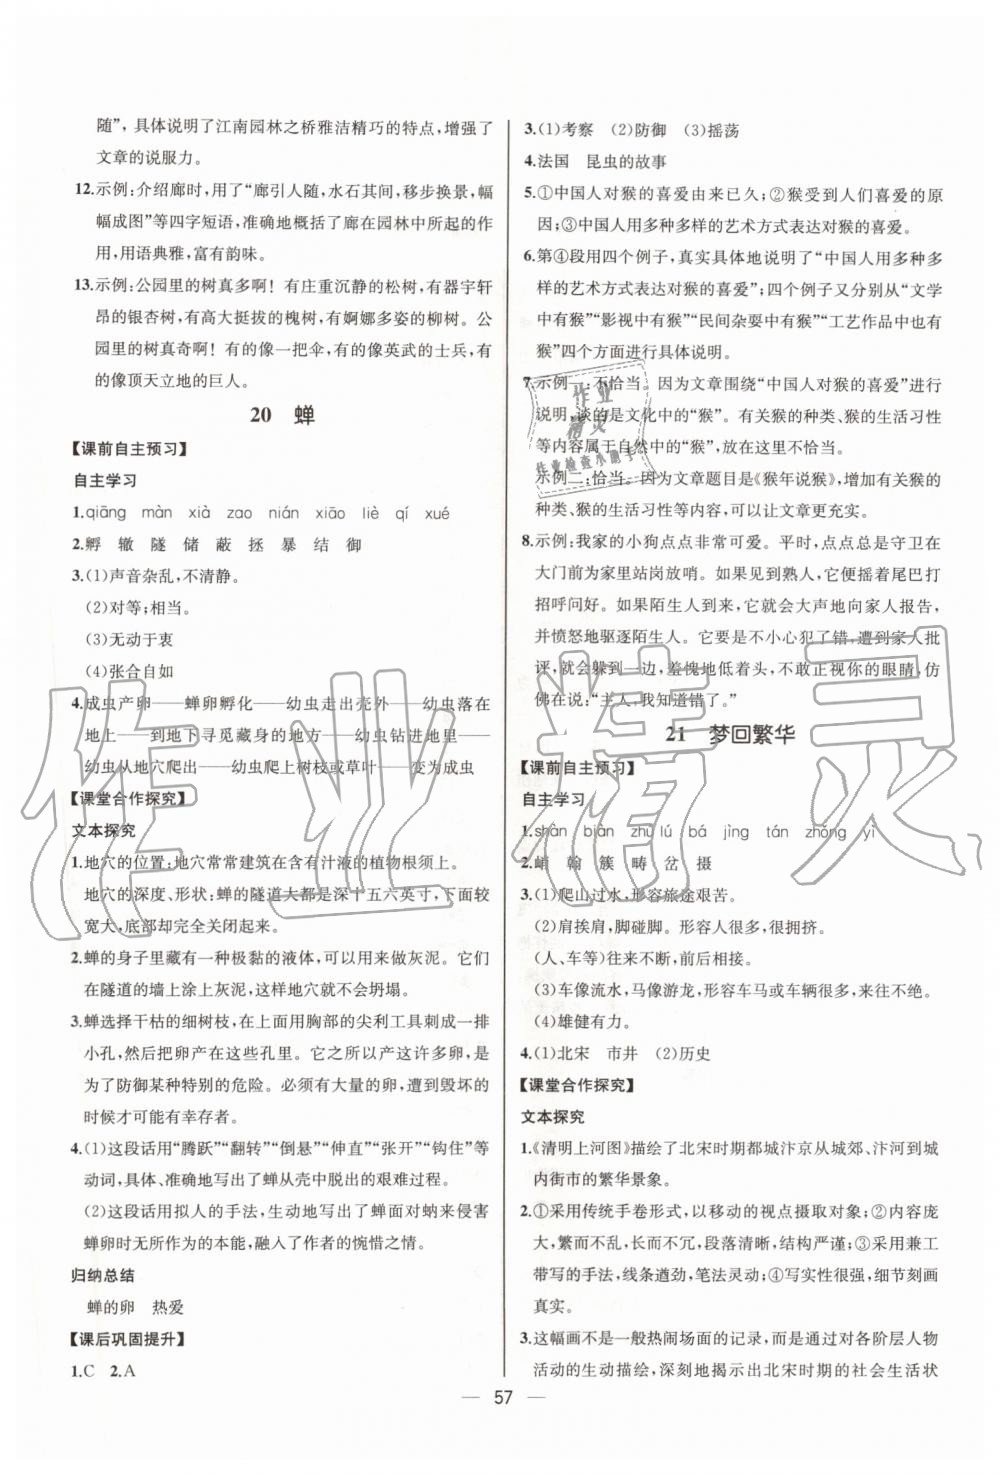 随”,具体说明了江南园林之桥雅洁精巧的特点,增强了
文章的说服力。
12.示例:介绍廊时,用了“廊引人随,水石其间,移步换景,幅
幅成图”等四字短语,准确地概括了廊在园林中所起的作
用,用语典雅,富有韵味。
13.示例:公园里的树真多啊!有庄重沉静的松树,有器宇轩
昂的银杏树,有高大挺拔的槐树,有婀娜多姿的柳树。公
园里的树真奇啊!有的像一把伞,有的像英武的士兵,有
的像顶天立地的巨人。
20 蝉
【课前自主预习】
自主学习
1.qiāng màn xià zao nián xiāo liè qí xué
2.孵 辙 隧 储 蔽 拯 暴 结 御
3.(1)声音杂乱,不清静。
(2)对等;相当。
(3)无动于衷
(4)张合自如
4.成虫产卵——蝉卵孵化——幼虫走出壳外——幼虫落在
地上——到地下寻觅藏身的地方——幼虫钻进地里——
幼虫从地穴爬出——幼虫爬上树枝或草叶——变为成虫
【课堂合作探究】
文本探究
1.地穴的位置:地穴常常建筑在含有汁液的植物根须上。
地穴的深度、形状:蝉的隧道大都是深十五六英寸,下面较
宽大,底部却完全关闭起来。
2.蝉的身子里藏有一种极黏的液体,可以用来做灰泥。它们
在隧道的墙上涂上灰泥,这样地穴就不会坍塌。
3.蝉选择干枯的细树枝,在上面用胸部的尖利工具刺成一排
小孔,然后把卵产在这些小孔里。它之所以产这许多卵,是
为了防御某种特别的危险。必须有大量的卵,遭到毁坏的
时候才可能有幸存者。
4.(1)这段话用“腾跃”“翻转”“倒悬”“伸直”“张开”“钩住”等
动词,具体、准确地写出了蝉从壳中脱出的艰难过程。
(2)这段话用拟人的手法,生动地写出了蝉面对蚋来侵害
蝉卵时无所作为的本能,融入了作者的惋惜之情。
归纳总结
蝉的卵 热爱
【课后巩固提升】
1.C 2.A
3.(1)考察 (2)防御 (3)摇荡
4.法国 昆虫的故事
5.①中国人对猴的喜爱由来已久;②猴受到人们喜爱的原
因;③中国人用多种多样的艺术方式表达对猴的喜爱。
6.第④段用四个例子,真实具体地说明了“中国人用多种多
样的艺术方式表达对猴的喜爱”;四个例子又分别从“文学
中有猴”“影视中有猴”“民间杂耍中有猴”“工艺作品中也有
猴”四个方面进行具体说明。
7.示例一:不恰当。因为文章围绕“中国人对猴的喜爱”进行
说明,谈的是文化中的“猴”。有关猴的种类、猴的生活习性
等内容属于自然中的“猴”,放在这里不恰当。
示例二:恰当。因为文章题目是《猴年说猴》,增加有关猴的
种类、猴的生活习性等内容,可以让文章更充实。
8.示例:我家的小狗点点非常可爱。平时,点点总是守卫在
大门前为家里站岗放哨。如果见到熟人,它便摇着尾巴打
招呼问好。如果陌生人到来,它就会大声地向家人报告,
并愤怒地驱逐陌生人。它要是不小心犯了错,遭到家人批
评,就会躲到一边,羞愧地低着头,不敢正视你的眼睛,仿
佛在说:“主人,我知道错了。”
21 梦回繁华
【课前自主预习】
自主学习
1.shàn biàn zhù lú bá jìng tán zhǒng yì
2.峭 翰 簇 畴 岔 摄
3.(1)爬山过水,形容旅途艰苦。
(2)肩挨肩,脚碰脚。形容人很多,很拥挤。
(人、车等)往来不断,前后相接。
(3)车像流水,马像游龙,形容车马或车辆很多,来往不绝。
(4)雄健有力。
4.(1)北宋 市井 (2)历史
【课堂合作探究】
文本探究
1.《清明上河图》描绘了北宋时期都城汴京从城郊、汴河到城
内街市的繁华景象。
2.①采用传统手卷形式,以移动的视点摄取对象;②内容庞
大,繁而不乱,长而不冗,段落清晰,结构严谨;③采用兼工
带写的手法,线条遒劲,笔法灵动;④写实性很强,细节刻画
真实。
3.这幅画不是一般热闹场面的记录,而是通过对各阶层人物
活动的生动描绘,深刻地揭示出北宋时期的社会生活状
— 57 —
作业精灵
作业
精灵
作业检查小助手